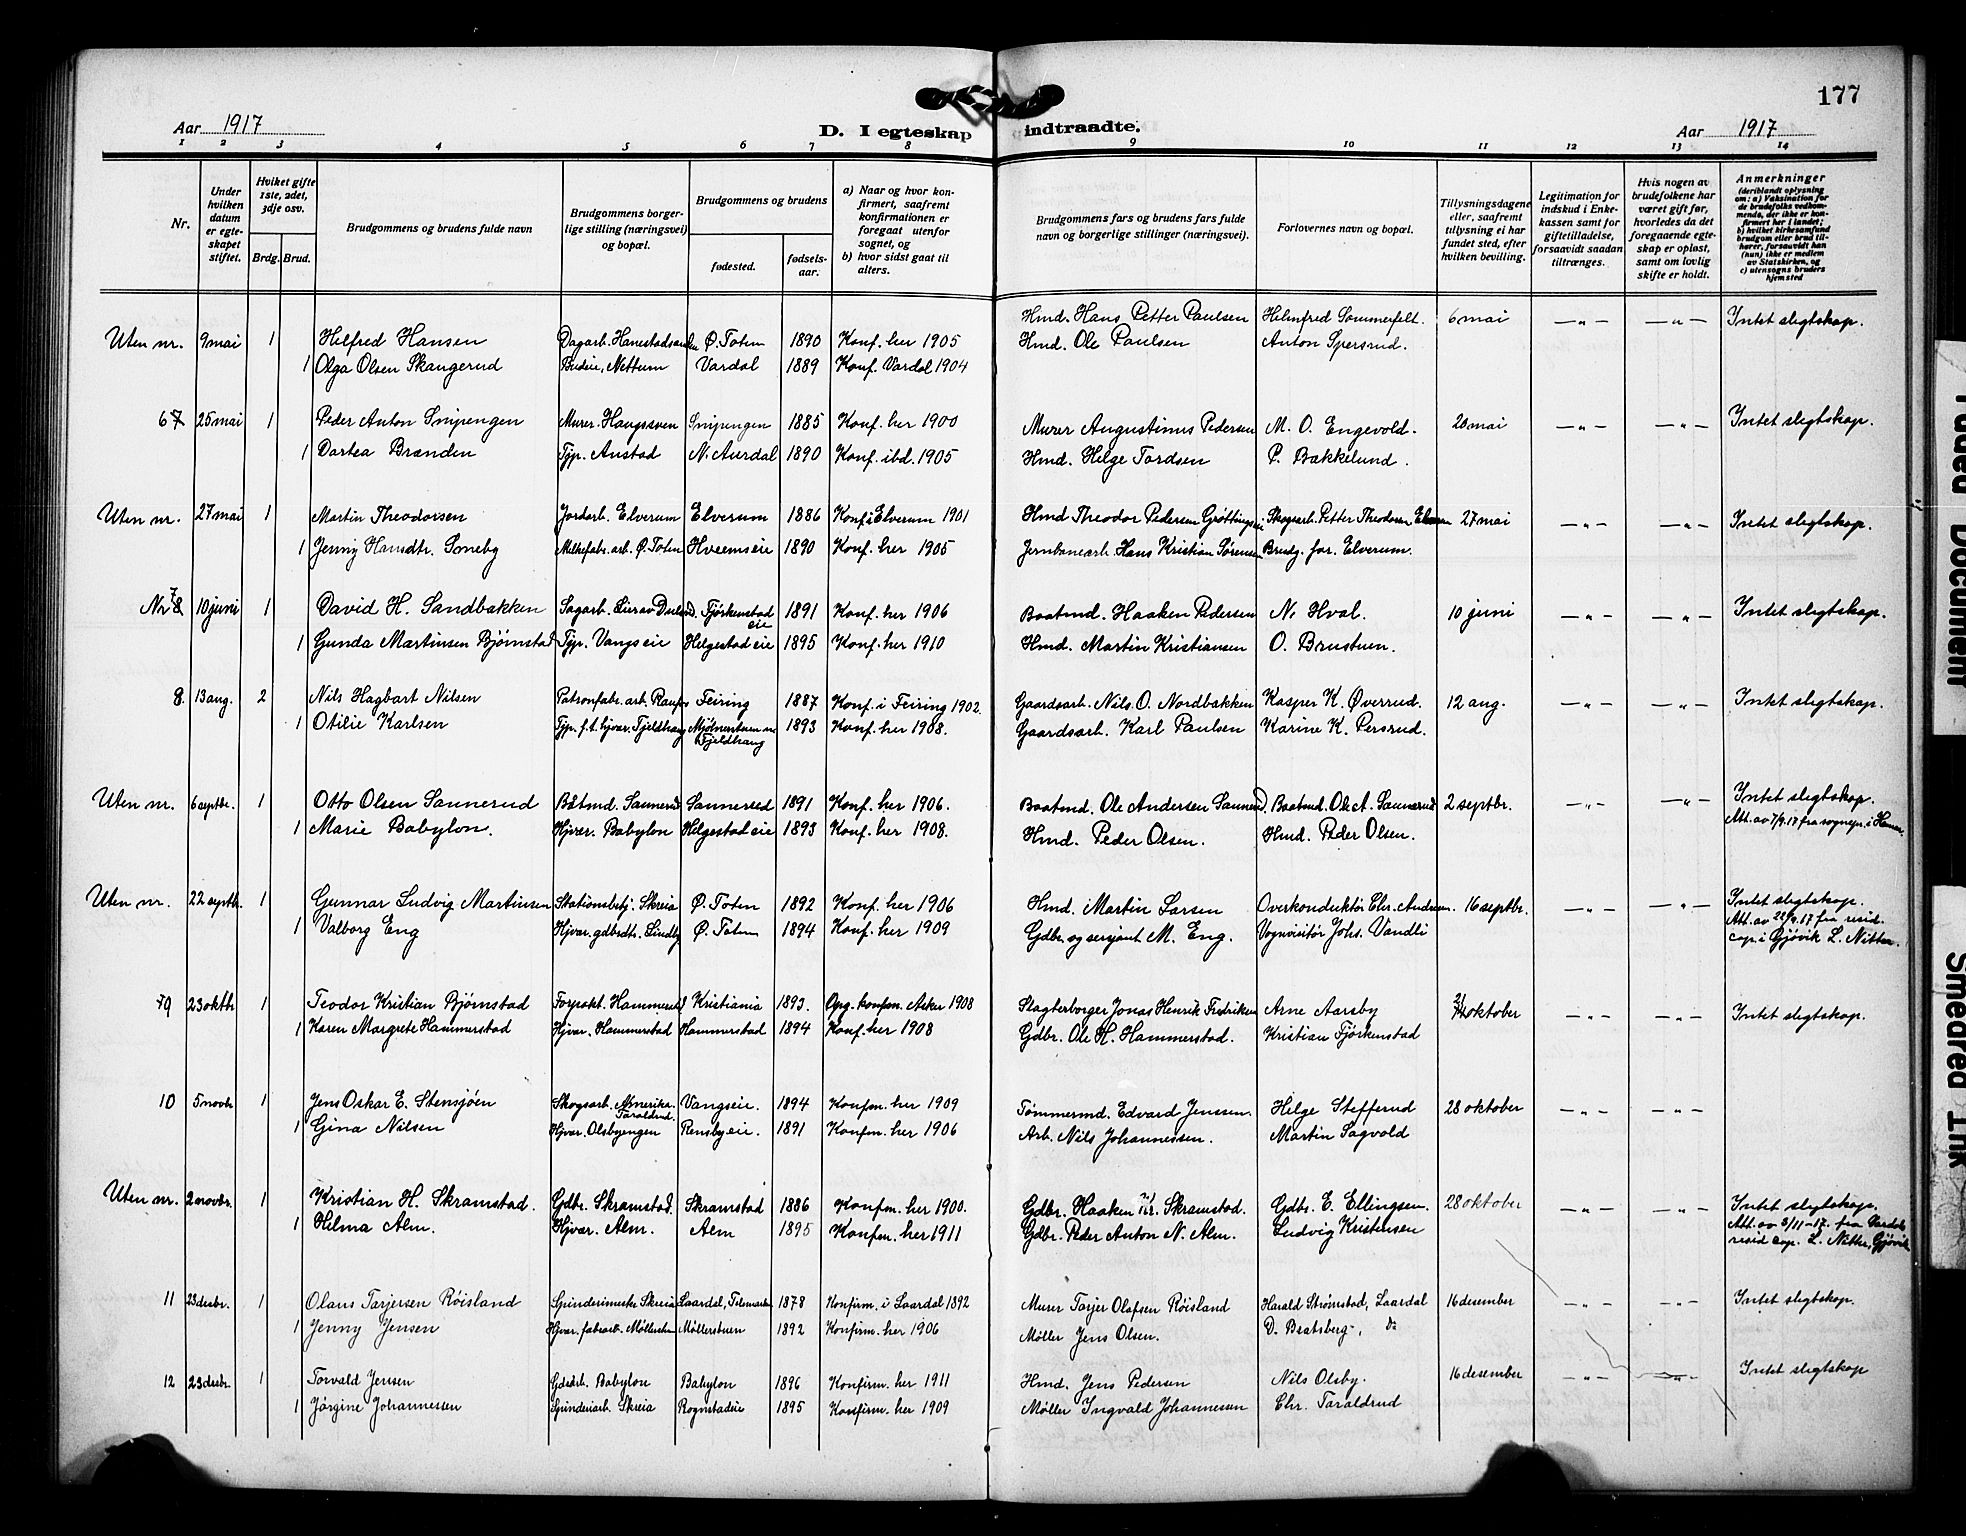 177
Aar 1917
D. I egteskap indtraadte.
Aar 1917
1 2 3 4 5 6 7 8 9 10 11 12 13 14
Nr.
Under hvilken datum er egteskapet stiftet.
Hviket gifte 1ste, 2det, 3dje osv.
Brdg. Brud.
Brudgommens og brudens fulde navn
Brudgommens borgerlige stilling (næringsvei) og bopæl.
Brudgommens og brudens
fødested.
fødselsaar.
a) Naar og hvor konfirmert, saafremt konfirmationen er foregaat utenfor sognet, og
b) hvor sidst gaat til alters.
Brudgommens fars og brudens fars fulde navn og borgerlige stillinger (næringsvei).
Forlovernes navn og bopæl.
Tillysningsdagene eller, saafremt tillysning ei har fundet sted, efter hvilken bevilling.
Legitimation for indskud i Enkekassen samt for giftetilladelse, forsaavidt saadan tiltrænges.
Hvis nogen av brudefolkene har været gift før, hvorledes da det foregaaende egteskap er opløst, samt om lovlig skifte er holdt.
Anmerkninger (deriblandt oplysning om: a) Vaksination for de brudefolks vedkommende, der ikke er konfirmert her i landet; b) hvilket kirkesamfund brudgom eller brud tilhører, forsaavidt han (hun) ikke er medlem av Statskirken, og c) utensogns bruders hjemsted
Hmd. Hans Petter Paulsen Helmfred Sommerfelt. 6 mai —"— —"— Intet slegtskap.
Uten nr. 9 mai 1 Hilfred Hansen Dagarb. Ø. Toten 1890 Konf. her 1905 Hmd. Ole Paulsen Anton Spersrud.
1 Olga Olsen Skangerud Budeie, Nettum Vardal 1889 Konf. Vardal 1904
67 25 mai 1 Peder Anton Snipengen Murer. Haugsveen Snipengen 1885 Konf. her 1900 Murer Augustinus Pedersen M. O. Engevold. 20 mai —"— —"— Intet slegtskap.
1 Dartea Brænden Tjp. Anstad N. Aurdal 1890 Konf. ibd. 1905 Hmd. Helge Tordsen P. Bækkelund.
Uten nr. 27 mai 1 Martin Theodorsen Jordarb. Elverum Elverum 1886 Konf i Elverum 1901 Hmd Theodor Pedersen Skogsarb. Petter Theodorsen 27 mai —"— —"— Intet slegtskap.
1 Jenny Hansdtr. Soneby Milkefabr. arb. Ø. Toten Hveemseie 1890 Konf. her 1905 Jernbanearb. Hans Kristian Sørensen Brudg. far. Elverum.
Nr 8 7 10 juni 1 David H. Sandbakken Sagarb. Fjørkenstad eie 1891 Konf. her 1906 Baatmd. Haaken Pedersen N. Hval. 10 juni —"— —"— Intet slegtskap.
1 Gunda Martinsen Bjørnstad Tjp. Vangseie Helgestad eie 1895 Konf. her 1910 Hmd. Martin Kristiansen O. Brustuen.
8. 13 aug. 2 Nils Hagbart Nilsen Patronfabr. arb. Raufos Feiring 1887 Konf. i Feiring 1902. Gaardsarb. Nils O. Nordbakken Kasper K. Øverrud. 12 aug. —"— —"— Intet slegtskap.
1 Otilie Karlsen Tjp. f. t. hjvær. Fjeldhaug Fjeldhaug 1893 Konf. her 1908. Gaardsarb. Karl Paulsen Karine K. Persrud.
Uten nr. 6 septbr. 1 Otto Olsen Sannerud Båtmd. Sannerud 1891 Konf. her 1906. Baatmd. Ole Andersen Baatmd. Ole A. Sannerud 2 septbr. —"— —"— Intet slegtskap.
1 Marie Babylon. Hjvær. Babylon Helgestad eie 1893 Konf. her 1908. Hmd. Peder Olsen. Hmd. Peder Olsen. Att. av 7/9.17 fra sognepr. i
Uten nr. 22 septb. 1 Gunnar Ludvig Martinsen Stationsbetj. Skreia Ø. Toten 1892 Konf. her 1906 Hmd. Martin Larsen Overkonduktør Chr. 16 septbr. —"— —"— Intet slegtskap.
1 Valborg Eng Hjvær. gdbrdt. Lindby Ø. Toten 1894 Konf. her 1909 Gdbr. og sersjant M. Eng. Vognvisitør Johs. Vandli Att. av 22/9.17 fra resid. cap. i Gjøvik L. Nitter.
9 23 oktb 1 Teodor Kristian Bjørnstad Forpakt. Hammerstad Kristiania 1893. Opg. konfm. Asker 1908 Slagterborger Jonas Henrik Fredriksen Arne Aarsby 21 oktober —"— —"— Intet slegtskap.
1 Karen Margrete Hammerstad Hjvær. Hammerstad Hammerstad 1894 Konf. her 1908 Gdbr. Ole H. Hammerstad. Kristian Fjørkenstad
10 5 novb 1 Jens Oskar E. Stensjøen Skogsarb. Amerika. Taraldrud. Vangseie. 1894 Konfm. her 1909 Tømmermd. Edvard Jenssen. Helge Stefferud 28 oktober —"— —"—
1 Gina Nilsen Hjvær. Olsbyengen Rensby eie. 1891 Konfm. her 1906 Arb. Nils Johannessen. Martin Sagvold
Uten nr. 2 novbr. 1 Kristian H. Skramstad. Gdbr. Skramstad. Skramstad 1886 Konfm. her 1900. Gdbr. Haaken Kr. Skramstad. Gdbr. E. Ellingsen. 28 oktober —"— —"— Intet slegtskap.
1 Helma Alm. Hjvær. Alm. Alm 1895 Konfm. her 1911 Gdbr. Peder Anton N. Alm. Ludvig Kristensen Att. av 3/11-17. fra Vardal resid cap. L. Nitter, Gjøvik
11 23 desbr. 1 Olaus Tarjersen Røisland Spinderimester Skreia Laardal, Telemarken 1878 Konfirm. i Laardal 1892 Murer Tarjer Olafsen Røisland Harald Strømstad, Laardal 16 desember —"— —"— Intet slegtskap.
1 Jenny Jensen Hjvær. fabrarb. Møllerstuen 1892 Konfirm. her 1906 Møller Jens Olsen. D. Bratsberg, do
12 23 desbr. 1 Torvald Jensen Gdsarb. Babylon Babylon 1896 Konfirm. her 1911 Hmd. Jens Pedersen Nils Olsby. 16 desember —"— —"— Intet slegtskap
1 Jørgine Johannessen Spinderiarb. Skreia Rognstadeie 1895 Konfirm. her 1909 Møller Ingvald Johannesen Chr. Taraldrud
Faded Document
Smeared Ink